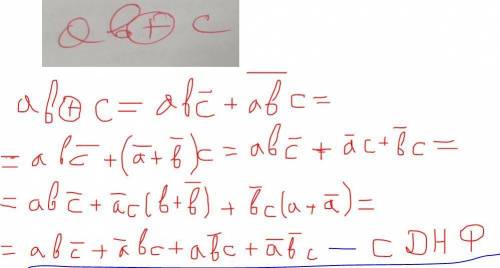 ab ⊕ c
ab ⊕ c = abc̅ + \overline{ab} c =
= abc̅ + (a̅ + b̅)c = abc̅ + a̅c + b̅c =
= abc̅ + a̅c(b + b̅) + b̅c(a + a̅) =
= abc̅ + a̅bc + ab̅c + a̅b̅c — СДНФ